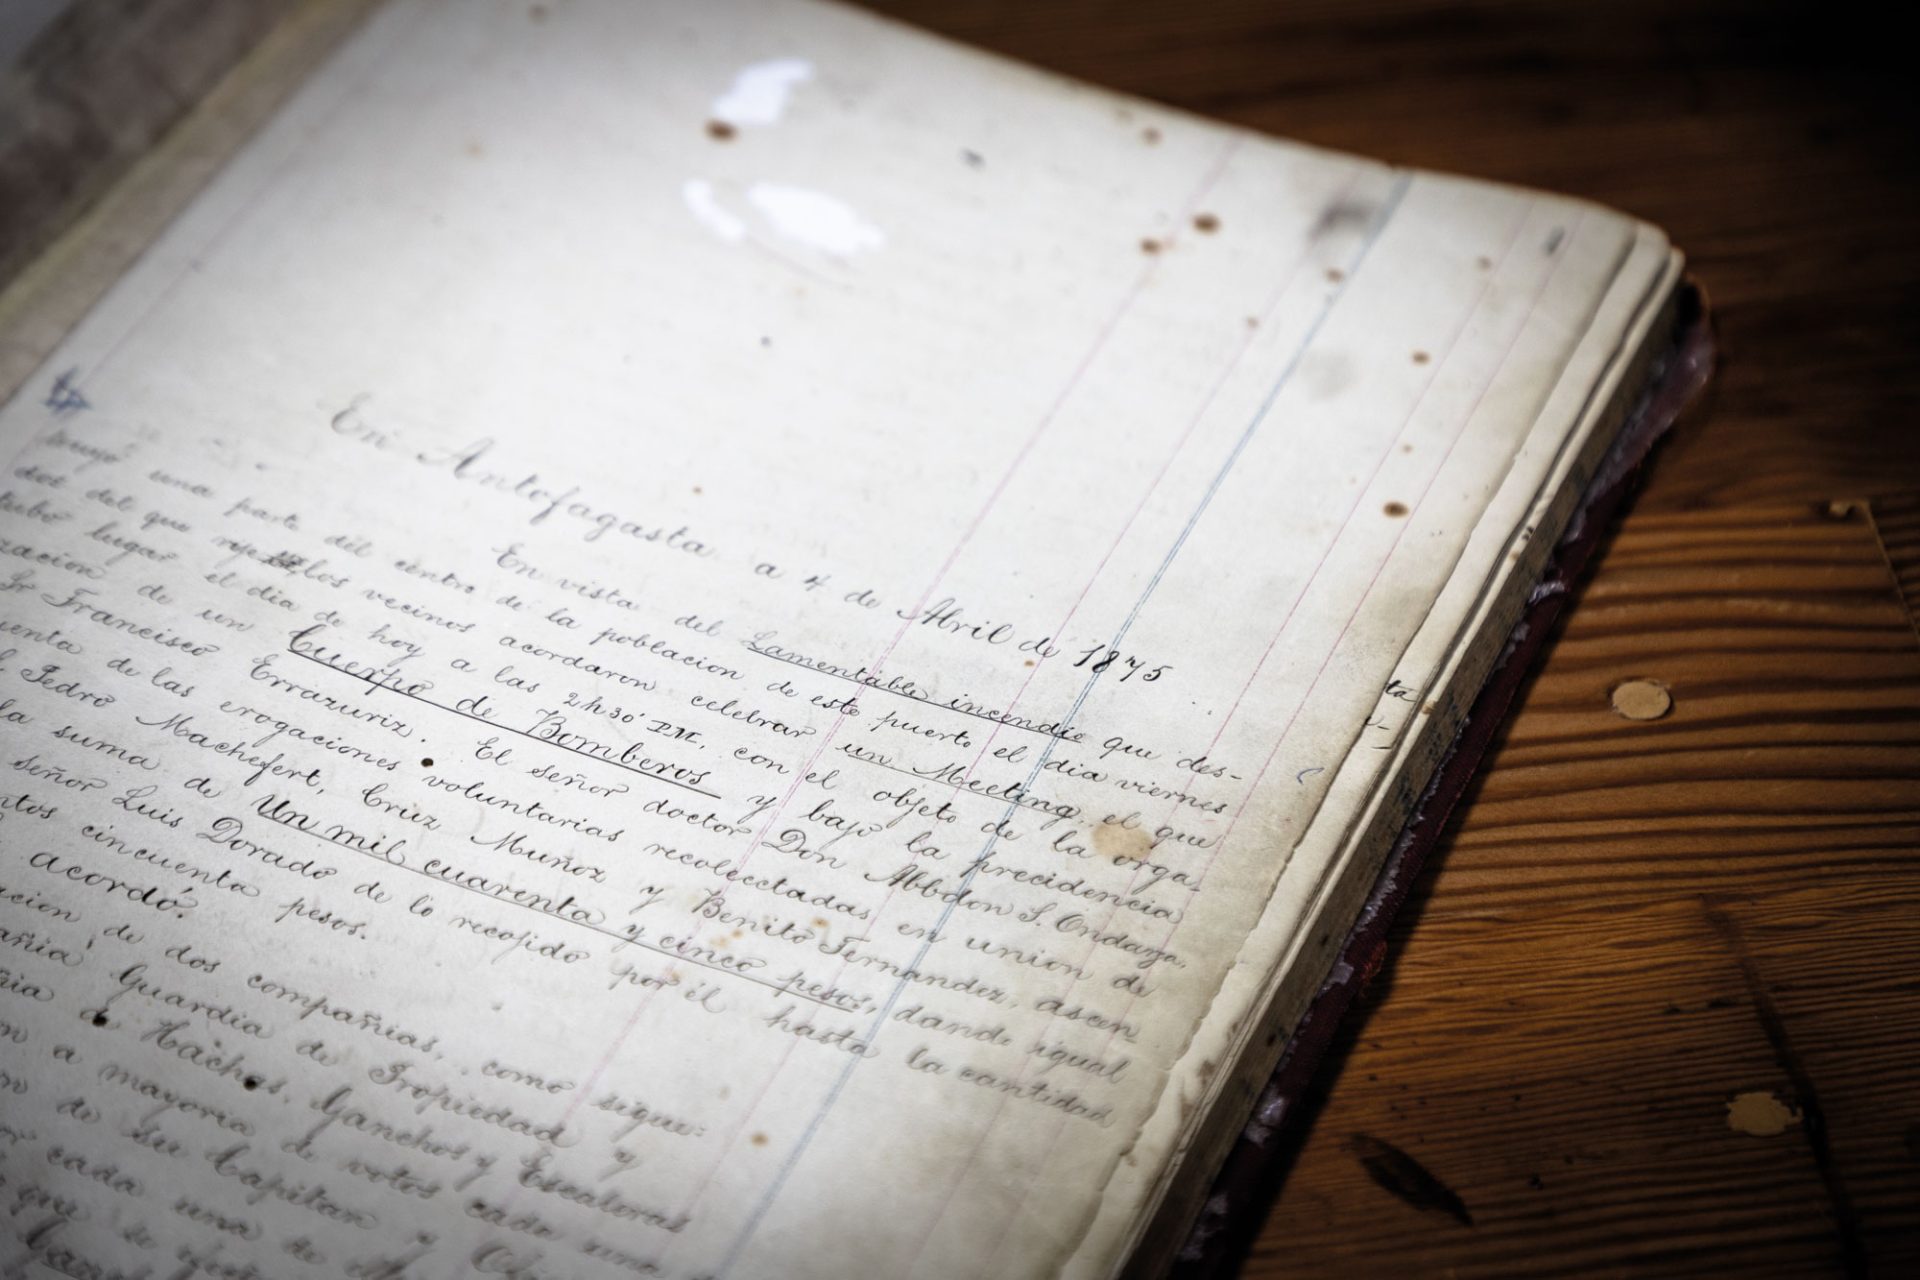 En Antofagasta a 4 de Abril de 1875
En vista del Lamentable incendio que des-
truyó una parte del centro de la poblacion de este puerto el dia viernes
dos del que rije los vecinos acordaron celebrar un Meeting, el que
tubó lugar el dia de hoy a las 2h30' PM, con el objeto de la orga-
zacion de un Cuerpo de Bomberos y bajo la precidencia
Sr Francisco Errazuriz. El señor doctor Don Abbdon S. Ondarza,
cuenta de las erogaciones voluntarias recolectadas en union de
Pedro Machefert, Cruz Muñoz y Benito Fernandez, ascen
la suma de Un mil cuarenta y cinco pesos, dando igual
señor Luis Dorado de lo recojido por él hasta la cantidad
cincuenta pesos.
acordó:
de dos compañias, como sigue:
Guardia de Propiedad y
de Háchas, Ganchos y Escaleras
a mayoria de votos cada una
de su Capitan y
cada una de
que se